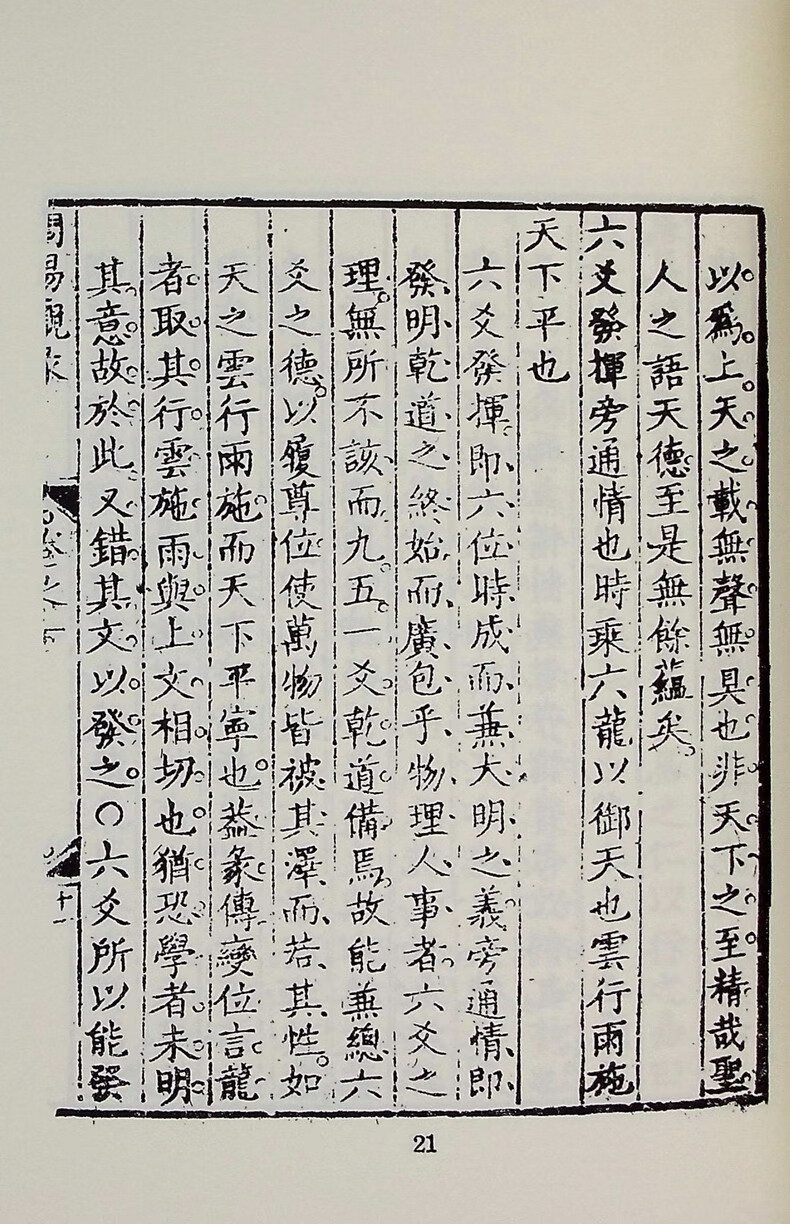 以爲上天之載無聲無臭也非天下之至精哉聖
人之語天德至是無餘蘊矣
六爻發揮旁通情也時乘六龍以御天也雲行雨施
天下平也
六爻發揮即六位時成而兼大明之義旁通情即
發明乾道之終始而廣包乎物理人事者六爻之
理無所不該而九五一爻乾道備焉故能兼總六
爻之德以履尊位使萬物皆被其澤而若其性如
天之雲行雨施而天下平寧也葢彖傳變位言龍
者取其行雲施雨與上文相切也猶恐學者未明
其意故於此又錯其文以發之○六爻所以能發
周易觀彖 卷之一 十一
21